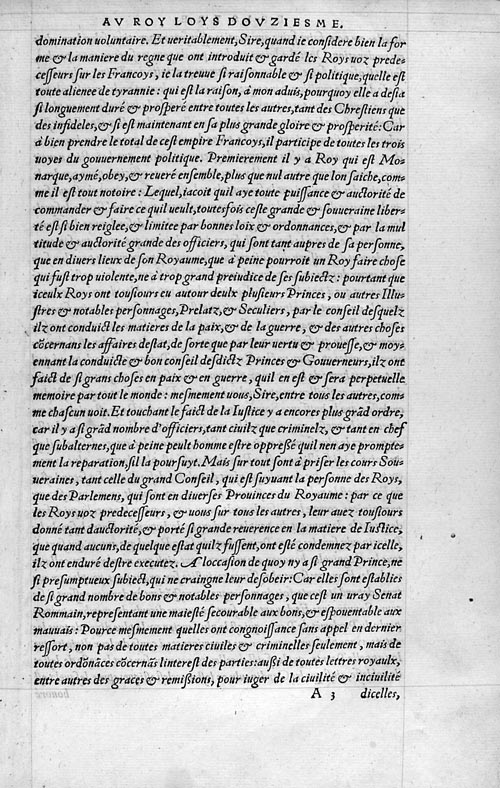 AV ROY LOYS DOVZIESME.
domination uoluntaire. Et ueritablement, Sire, quand ie considere bien la for
me & la maniere du regne que ont introduit & gardé les Roys uoz prede-
cesseurs sur les Francoys, ie la treuue si raisonnable & si politique, quelle est
toute alienee de tyrannie: qui est la raison, à mon aduis, pourquoy elle a desia
si longuement duré & prosperé entre toutes les autres, tant des Chrestiens que
des infideles, & si est maintenant en sa plus grande gloire & prosperité: Car
à bien prendre le total de cest empire Francoys, il participe de toutes les trois
uoyes du gouuernement politique. Premierement il y a Roy qui est Mo-
narque, aymé, obey, & reueré ensemble, plus que nul autre que lon saiche, com-
me il est tout notoire: Lequel, iacoit quil aye toute puissance & auctorité de
commander & faire ce quil ueult, toutesfois ceste grande & souueraine liber-
té est si bien reiglee, & limitee par bonnes loix & ordonnances, & par la mul
titude & auctorité grande des officiers, qui sont tant aupres de sa personne,
que en diuers lieux de son Royaume, que à peine pourroit un Roy faire chose
qui fust trop uiolente, ne à trop grand preiudice de ses subiectz: pourtant que
iceulx Roys ont tousiours eu autour deulx plusieurs Princes, ou autres Illu-
stres & notables personnages, Prelatz, & Seculiers, par le conseil desquelz
ilz ont conduict les matieres de la paix, & de la guerre, & des autres choses
cōcernans les affaires destat, de sorte que par leur uertu & prouesse, & moy-
ennant la conduicte & bon conseil desdictz Princes & Gouuerneurs, ilz ont
faict de si grans choses en paix & en guerre, quil en est & sera perpetuelle
memoire par tout le monde: mesmement uous, Sire, entre tous les autres, com-
me chascun uoit. Et touchant le faict de la Iustice y a encores plus grād ordre,
car il y a si grād nombre d'officiers, tant ciuilz que criminelz, & tant en chef
que subalternes, que à peine peult homme estre oppressé quil nen aye prompte-
ment la reparation, sil la poursuyt. Mais sur tout sont à priser les cours Sou-
ueraines, tant celle du grand Conseil, qui est suyuant la personne des Roys,
que des Parlemens, qui sont en diuerses Prouinces du Royaume: par ce que
les Roys uoz predecesseurs, & uous sur tous les autres, leur auez tousiours
donné tant dauctorité, & porté si grande reuerence en la matiere de Iustice,
que quand aucuns, de quelque estat quilz fussent, ont esté condemnez par icelle,
ilz ont enduré destre executez. A loccasion de quoy ny a si grand Prince, ne
si presumptueux subiect, qui ne craingne leur desobeir: Car elles sont establies
de si grand nombre de bons & notables personnages, que cest un uray Senat
Rommain, representant une maiesté secourable aux bons, & espouentable aux
mauuais: Pource mesmement quelles ont congnoissance sans appel en dernier
ressort, non pas de toutes matieres ciuiles & criminelles seulement, mais de
toutes ordonāces cōcernās linterest des parties: aussi de toutes lettres royaulx,
entre autres des graces & remissions, pour iuger de la ciuilité & inciuilité
A 3 dicelles,